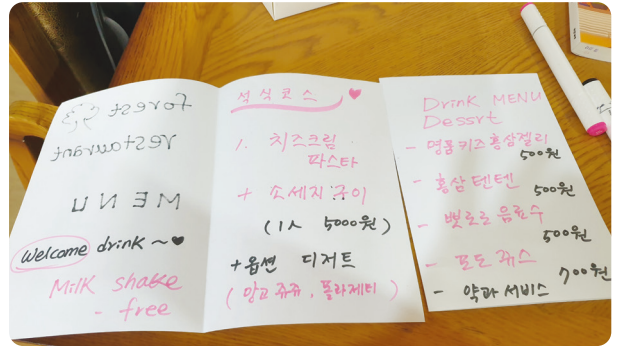 forest
restaurant
MENU
Welcome drink ~ ♥
Milk shake
- free
석식코스 ♥
1. 치즈크림
파스타
+ 소세지구이
(1人 5000원)
+ 옵션 디저트
(망고쥬쥬, 폴라제티)
Drink MENU
Dessrt
- 명품키즈홍삼젤리
500원
- 홍삼텐텐
500원
- 뽀로로음료수
500원
- 포도쥬스
700원
- 약과서비스